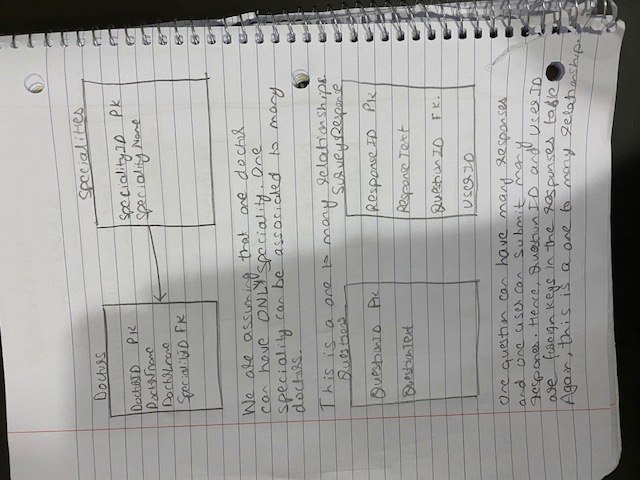 Doctors
Specialities
DoctorID PK
DoctorFname
DoctorLname
SpecialityID FK
SpecialityID PK
Speciality Name
We are assuming that one doctor
can have ONLY speciality. One
speciality can be associated to many
doctors.
This is a one to many relationships.
Questions
Survey Response
QuestionID PK
QuestionText
Response ID PK
Response Text
Question ID FK.
User ID
One question can have many responses
and one user can submit many
responses. Hence, Question ID and User ID
are foreign keys in the responses table
Again, this is a one to many relationship.